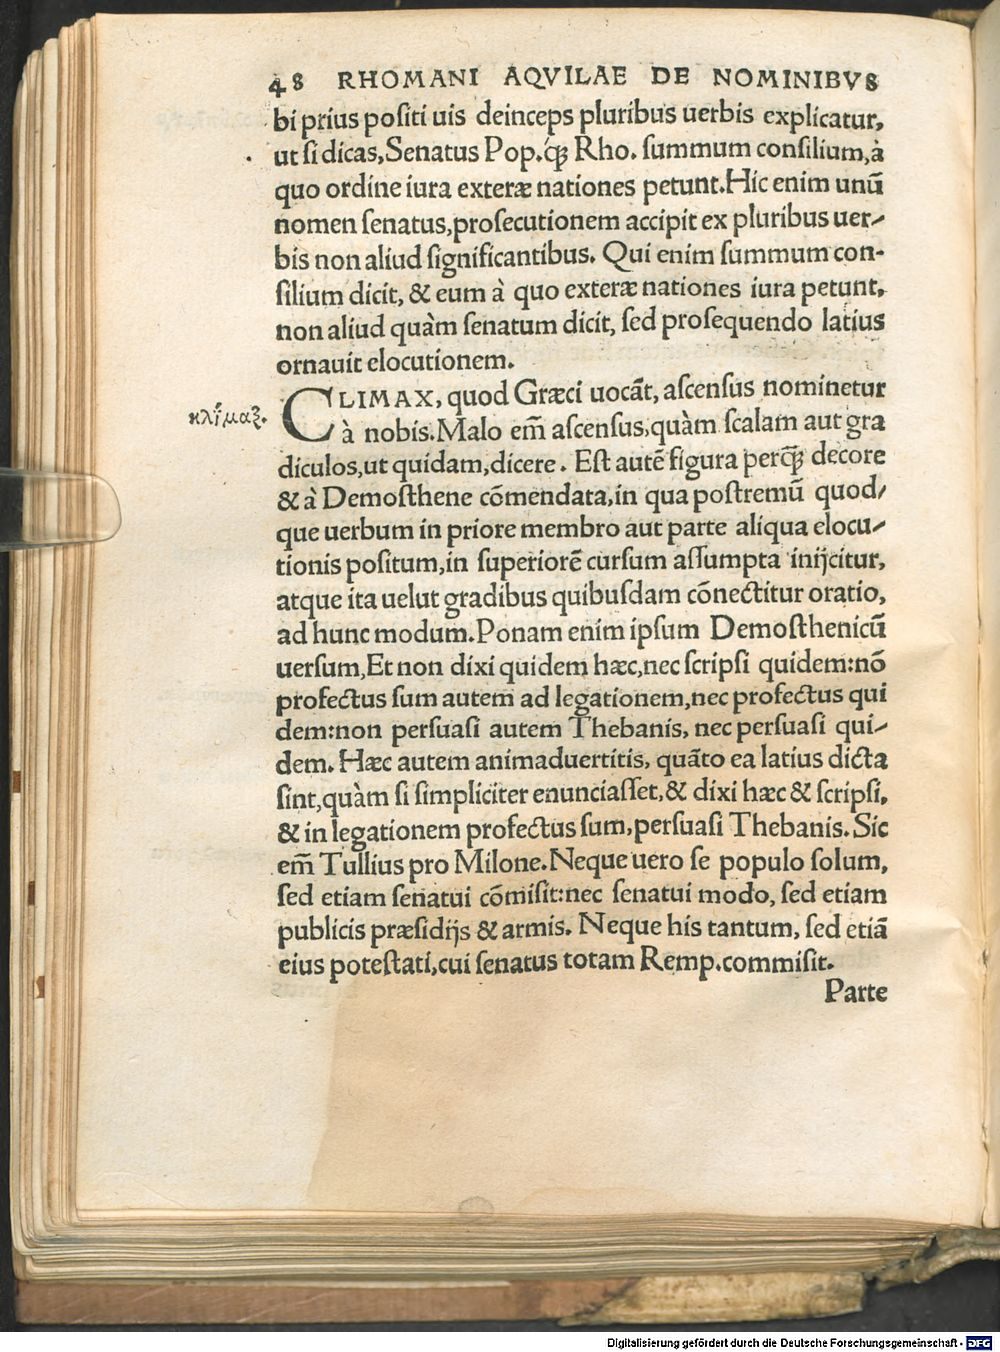 48 RHOMANI AQVILAE DE NOMINIBVS
bi prius positi uis deinceps pluribus uerbis explicatur,
ut si dicas, Senatus Pop.q́ꝫ Rho. summum consilium, à
quo ordine iura exteræ nationes petunt. Hic enim unū
nomen senatus, prosecutionem accipit ex pluribus uer-
bis non aliud significantibus. Qui enim summum con-
silium dicit, & eum à quo exteræ nationes iura petunt,
non aliud quàm senatum dicit, sed prosequendo latius
ornauit elocutionem.
CLIMAX, quod Græci uocāt, ascensus nominetur
κλῖμαξ.
à nobis. Malo em̄ ascensus, quàm scalam aut gra
diculos, ut quidam, dicere. Est autē figura perq̄ꝫ decore
& à Demosthene cōmendata, in qua postremū quod-
que uerbum in priore membro aut parte aliqua elocu-
tionis positum, in superiorē cursum assumpta inijcitur,
atque ita uelut gradibus quibusdam cōnectitur oratio,
ad hunc modum. Ponam enim ipsum Demosthenicū
uersum, Et non dixi quidem hæc, nec scripsi quidem: nō
profectus sum autem ad legationem, nec profectus qui
dem: non persuasi autem Thebanis, nec persuasi qui-
dem. Hæc autem animaduertitis, quāto ea latius dicta
sint, quàm si simpliciter enunciasset, & dixi hæc & scripsi,
& in legationem profectus sum, persuasi Thebanis. Sic
em̄ Tullius pro Milone. Neque uero se populo solum,
sed etiam senatui cōmisit: nec senatui modo, sed etiam
publicis præsidijs & armis. Neque his tantum, sed etiā
eius potestati, cui senatus totam Remp. commisit.
Parte
Digitalisierung gefördert durch die Deutsche Forschungsgemeinschaft - DFG